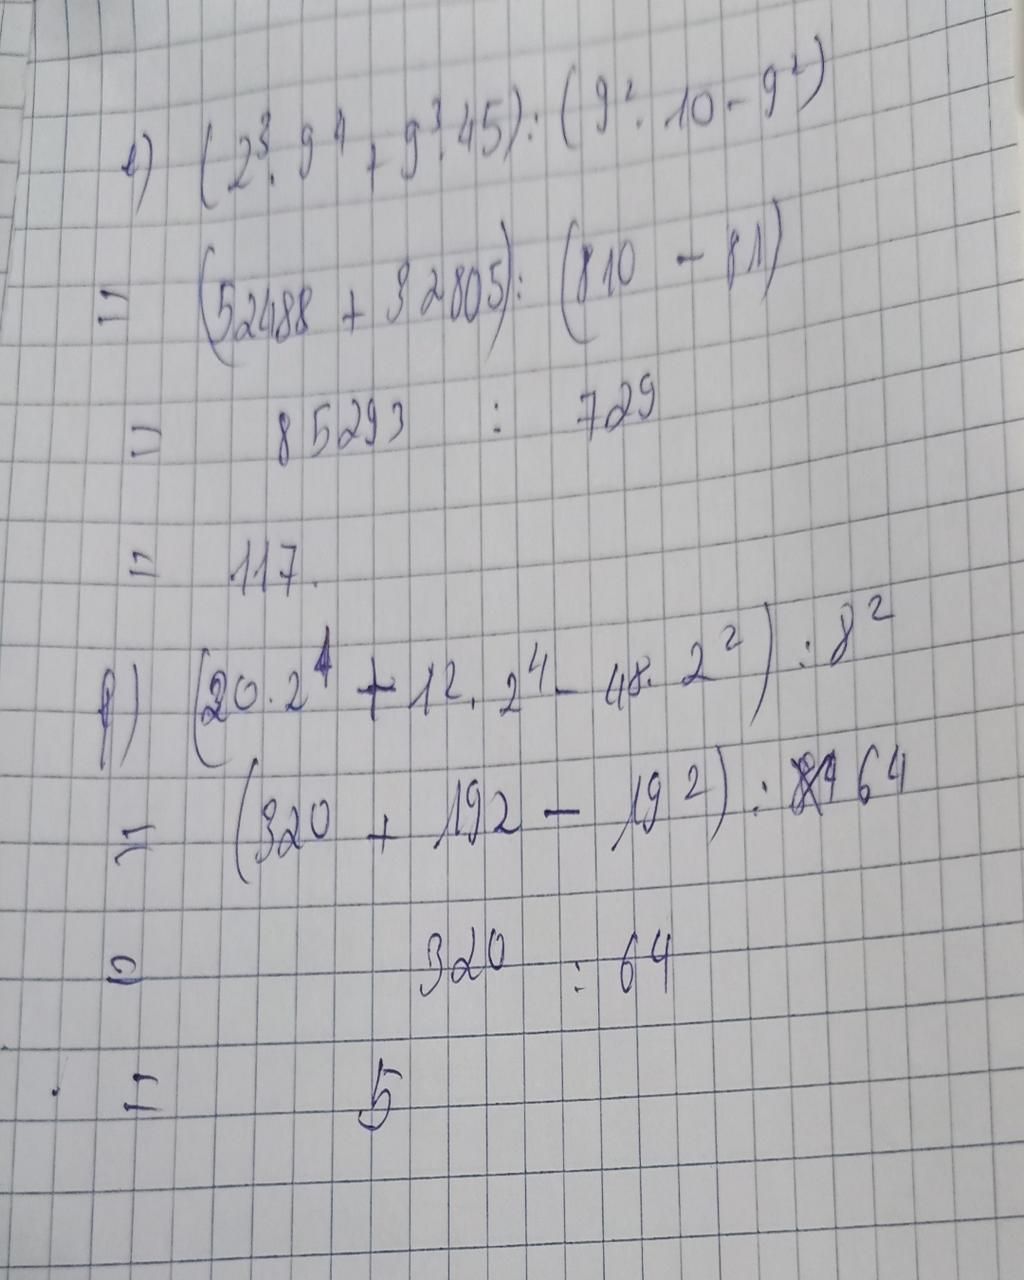 e) (2³. 9⁴ + 9³.45) : (9². 10 - 9²)
= (52488 + 32805) : (810 - 81)
= 85293 : 729
= 117.
f) (20. 2⁴ + 12. 2⁴ - 48. 2²) : 8²
= (320 + 192 - 192) : 64
= 320 : 64
= 5